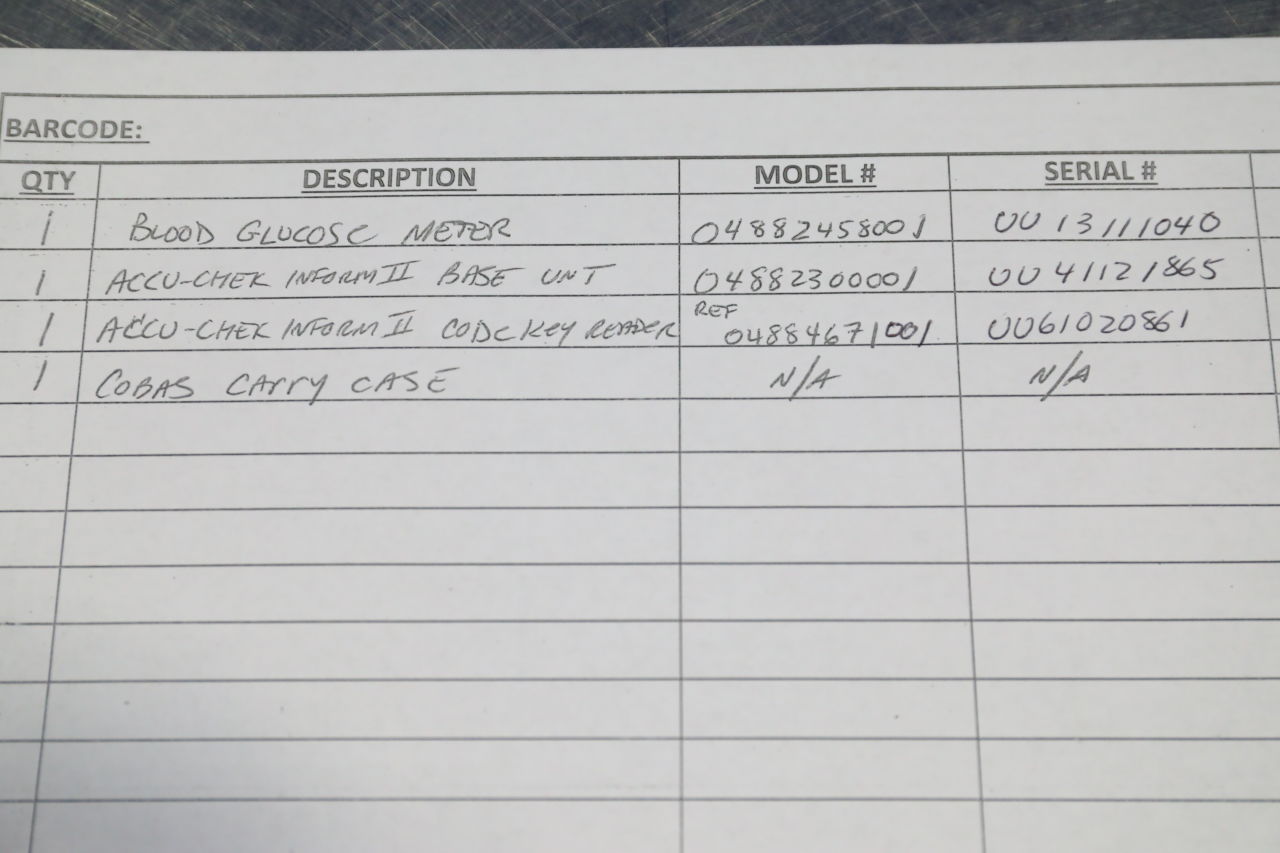 BARCODE:
QTY DESCRIPTION MODEL # SERIAL #
1 BLOOD GLUCOSE METER 04882458001 UU13111040
1 ACCU-CHEK INFORM II BASE UNT 04882300001 UU41121865
1 ACCU-CHEK INFORM II CODE KEY READER REF 04884671001 UU61020861
1 COBAS CARRY CASE N/A N/A